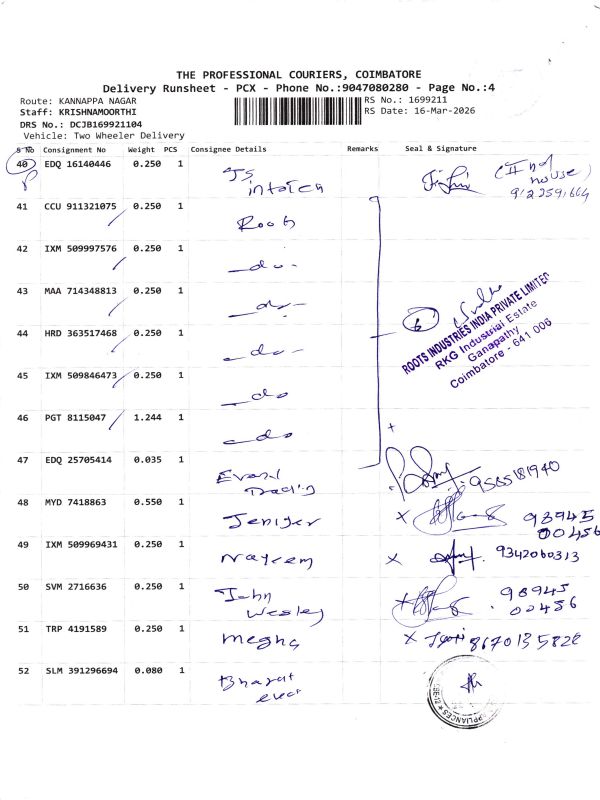 THE PROFESSIONAL COURIERS, COIMBATORE
Delivery Runsheet - PCX - Phone No.:9047080280 - Page No.:4
Route: KANNAPPA NAGAR RS No.: 1699211
Staff: KRISHNAMOORTHI RS Date: 16-Mar-2026
DRS No.: DCJB169921104
Vehicle: Two Wheeler Delivery
S No Consignment No Weight PCS Consignee Details Remarks Seal & Signature
40 EDQ 16140446 0.250 1 JS intotech (IInd house)
41 CCU 911321075 0.250 1 Roots
42 IXM 509997576 0.250 1 -do-
43 MAA 714348813 0.250 1 -do-
6
ROOTS INDUSTRIES INDIA PRIVATE LIMITED
RKG Industrial Estate
Ganapathy
Coimbatore - 641 006
44 HRD 363517468 0.250 1 -do-
45 IXM 509846473 0.250 1 -do
46 PGT 8115047 1.244 1 -do
47 EDQ 25705414 0.035 1 Trading 9585181940
48 MYD 7418863 0.550 1 Jenifer x 98945
00456
49 IXM 509969431 0.250 1 Nayeem x 9342060313
50 SVM 2716636 0.250 1 John Wesley x 98945
00456
51 TRP 4191589 0.250 1 Megha x 8670135822
52 SLM 391296694 0.080 1 Bharat elect
APPLIANCES